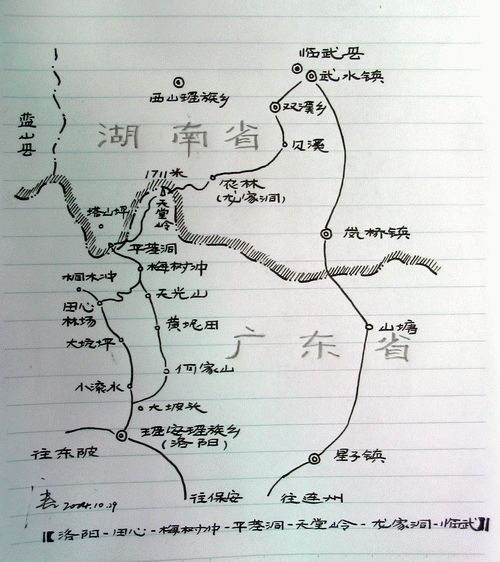 临武县
武水镇
西山瑶族乡
双溪乡
蓝山县
湖南省
贝溪
1711米
农林
(龙家洞)
天堂岭
塔山坪
岚桥镇
平基洞
梅树冲
桐木冲
天光山
田心
林场
黄坭田
广东省
山塘
大坑坪
何家山
小滚水
大坡头
瑶安瑶族乡
(洛阳)
往东陂
星子镇
往保安
往连州
2014.10.29
【洛阳-田心-梅树冲-平基洞-天堂岭-龙家洞-临武】